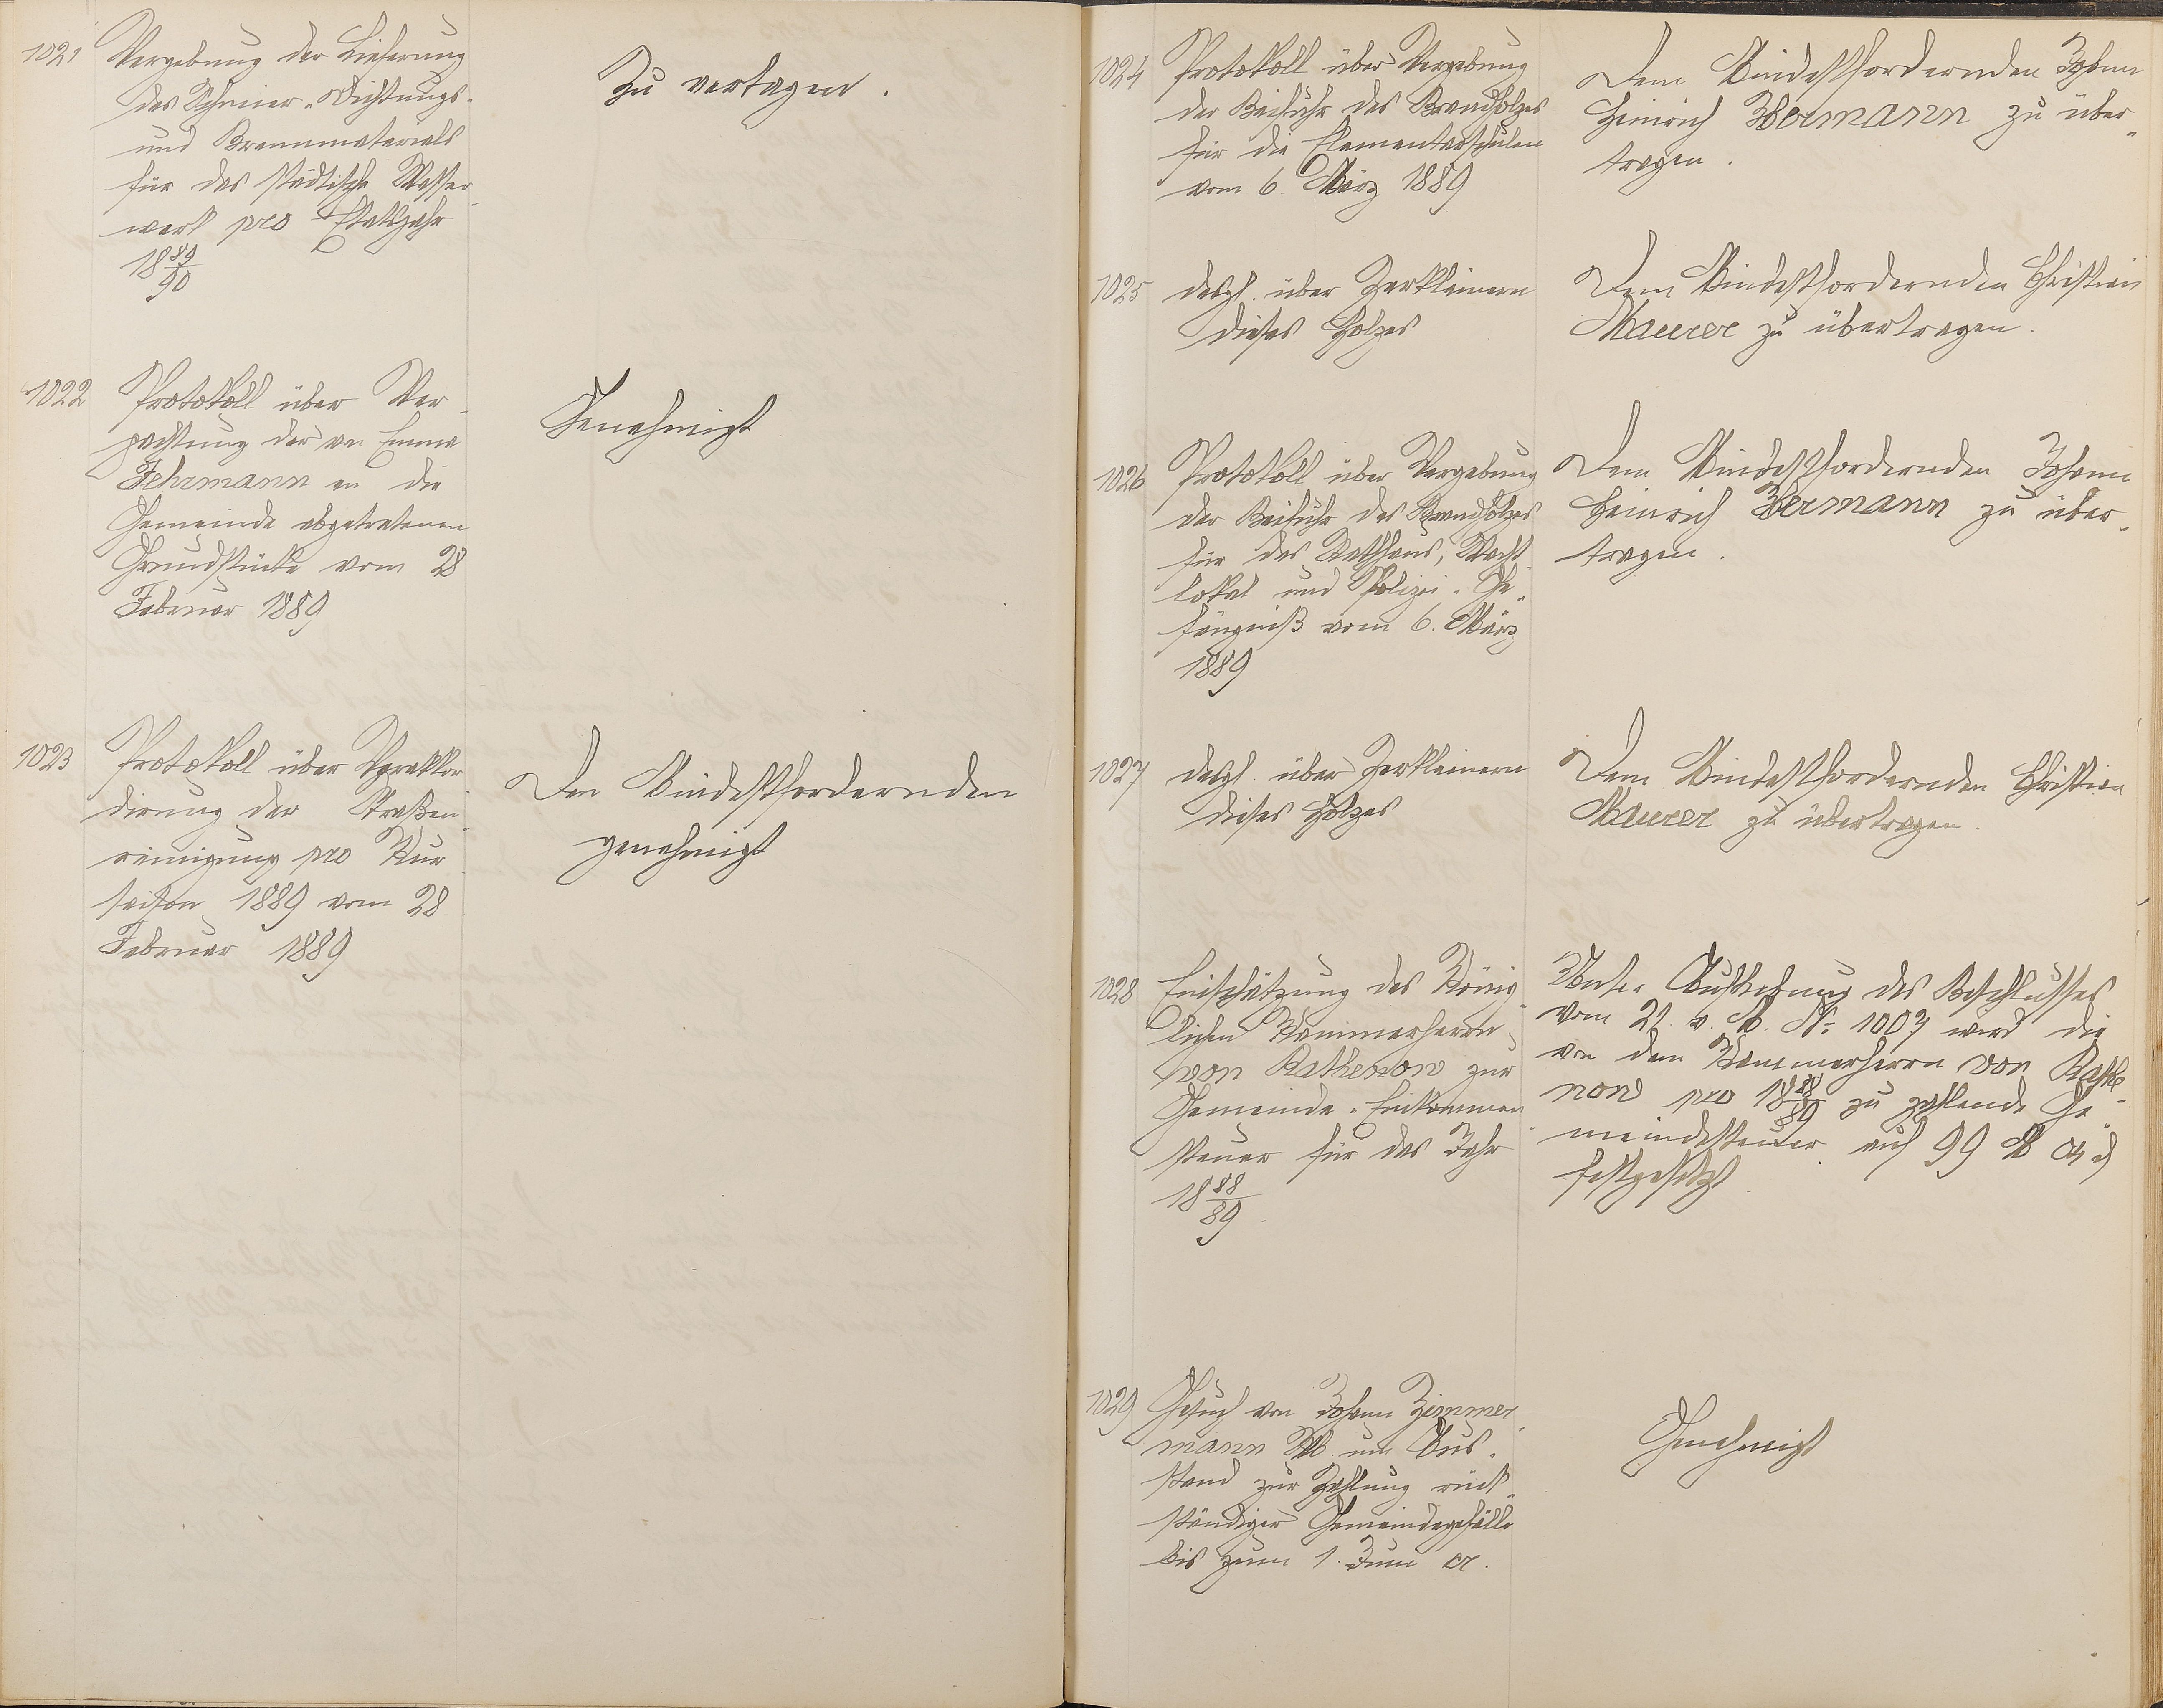 1021 Vergebung der Lieferung
des Schmier-Dichtungs-
und Brennmaterials
für das städtische Wasser-
werk pro Etatsjahr
18 89/90
Zu vertagen.
1022 Protokoll über Ver-
pachtung der von Emma
Fehrmann an die
Gemeinde abgetretenen
Grundstücke vom 28
Februar 1889
Genehmigt
1023 Protokoll über Verakkor-
dirung der Straßen-
reinigung pro Kur-
saison 1889 vom 28
Februar 1889
Den Mindestfordernden
genehmigt
1024 Protokoll über Vergebung
der Beifuhr des Brandholzes
für die Elementarschulen
vom 6. März 1889
Dem Mindestfordernden Johann
Heinrich Wermann zu über-
tragen.
1025 desgl. über Zerkleinern
dieses Holzes
Dem Mindestfordernden Christian
Maurer zu übertragen.
1026 Protokoll über Vergebung
der Beifuhr des Brandholzes
für das Rathhaus, Wacht-
lokal und Polizei-Ge-
fängniß vom 6. März
1889
Dem Mindestfordernden Johann
Heinrich Wermann zu über-
tragen.
1027 desgl. über Zerkleinern
dieses Holzes
Dem Mindestfordernden Christian
Maurer zu übertragen.
1028 Einschätzung des König-
lichen Kammerherrn
von Rathenow zur
Gemeinde-Einkommen-
steuer für das Jahr
18 88/89.
Unter Aufhebung des Beschlusses
vom 21. v. M. No 1007 wird die
von dem Kammerherrn von Rathe-
now pro 18 88/89 zu zahlende Ge-
meindesteuer auf 99 M
festgesetzt.
1029 Gesuch von Johann Zimmer-
mann um Aus-
stand zur Zahlung rück-
ständiger Gemeindegefälle
bis zum 1. Juni cr.
Genehmigt